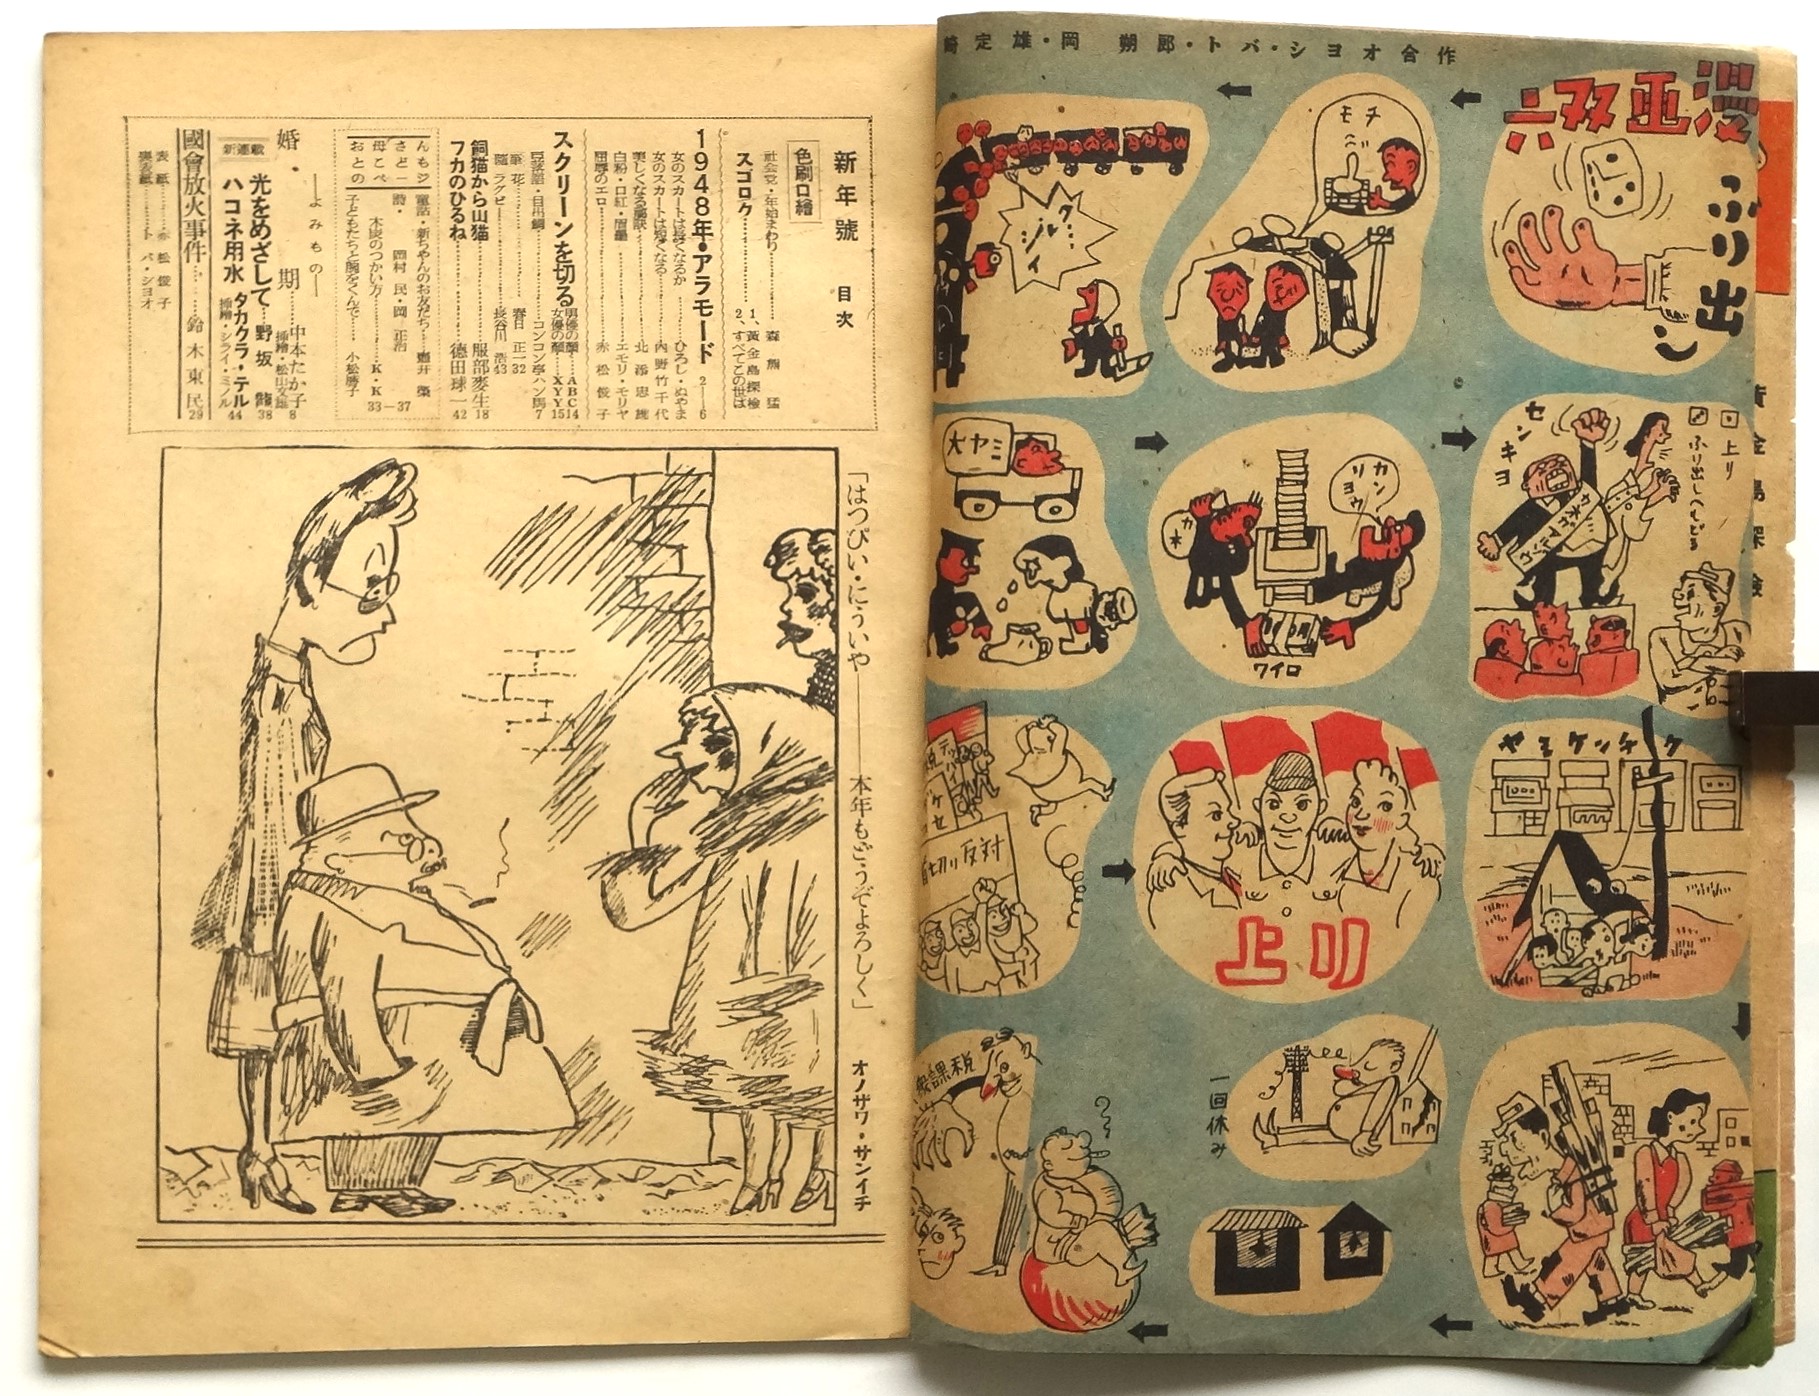 新年號 目次
色刷口繪
スゴロク
1、黃金島探檢
2、すべてこの世は
社会党・年始まわり 森熊猛
1948年・アラモード 2―6
女のスカートは長くなるか ひろし・ぬやま
女のスカートは短くなる 内野竹千代
美しくなる秘訣 北添忠雄
白粉・口紅・眉墨 エモリ・モリヤ
屈辱のエロ 赤松俊子
スクリーンを切る
男優の顔 ABC 14
女優の顔 XYY 15
豆落語・目出鯛 コンコン亭ハン馬 7
筆花 春日正一 32
随 ラグビー 長谷川浩 43
飼猫から山猫 服部麥生 18
フカのひるね 德田球一 42
おとの
母こべ
さどー
んもジ
童話・新ちゃんのお友だち 壺井榮
詩・ 岡村民・岡正治
木炭のつかい方 K・K
子どもたちと腕をくんで 小松勝子
33―37
―よみもの―
婚・期 中本たか子 8
挿繪・松山文雄
新連載
光をめざして 野坂龍 38
ハコネ用水 タカクラ・テル 44
挿繪・シライ・ミノル
國會放火事件 鈴木東民 29
表紙 赤松俊子
裏表紙 トバ・シヨオ
「はつぴい・にういや――本年もどうぞよろしく」
オノザワ・サンイチ
崎定雄・岡 朔郎・トバ・シヨオ合作
漫画双六
ふり出シ
モチ
大ヤミ
カンリヨウ
ワイロ
センキヨ
上リ
ふり出しへもどる
黃金島探檢
ヤミケンチク
首切リ反対
上リ
衆課税
一回休み